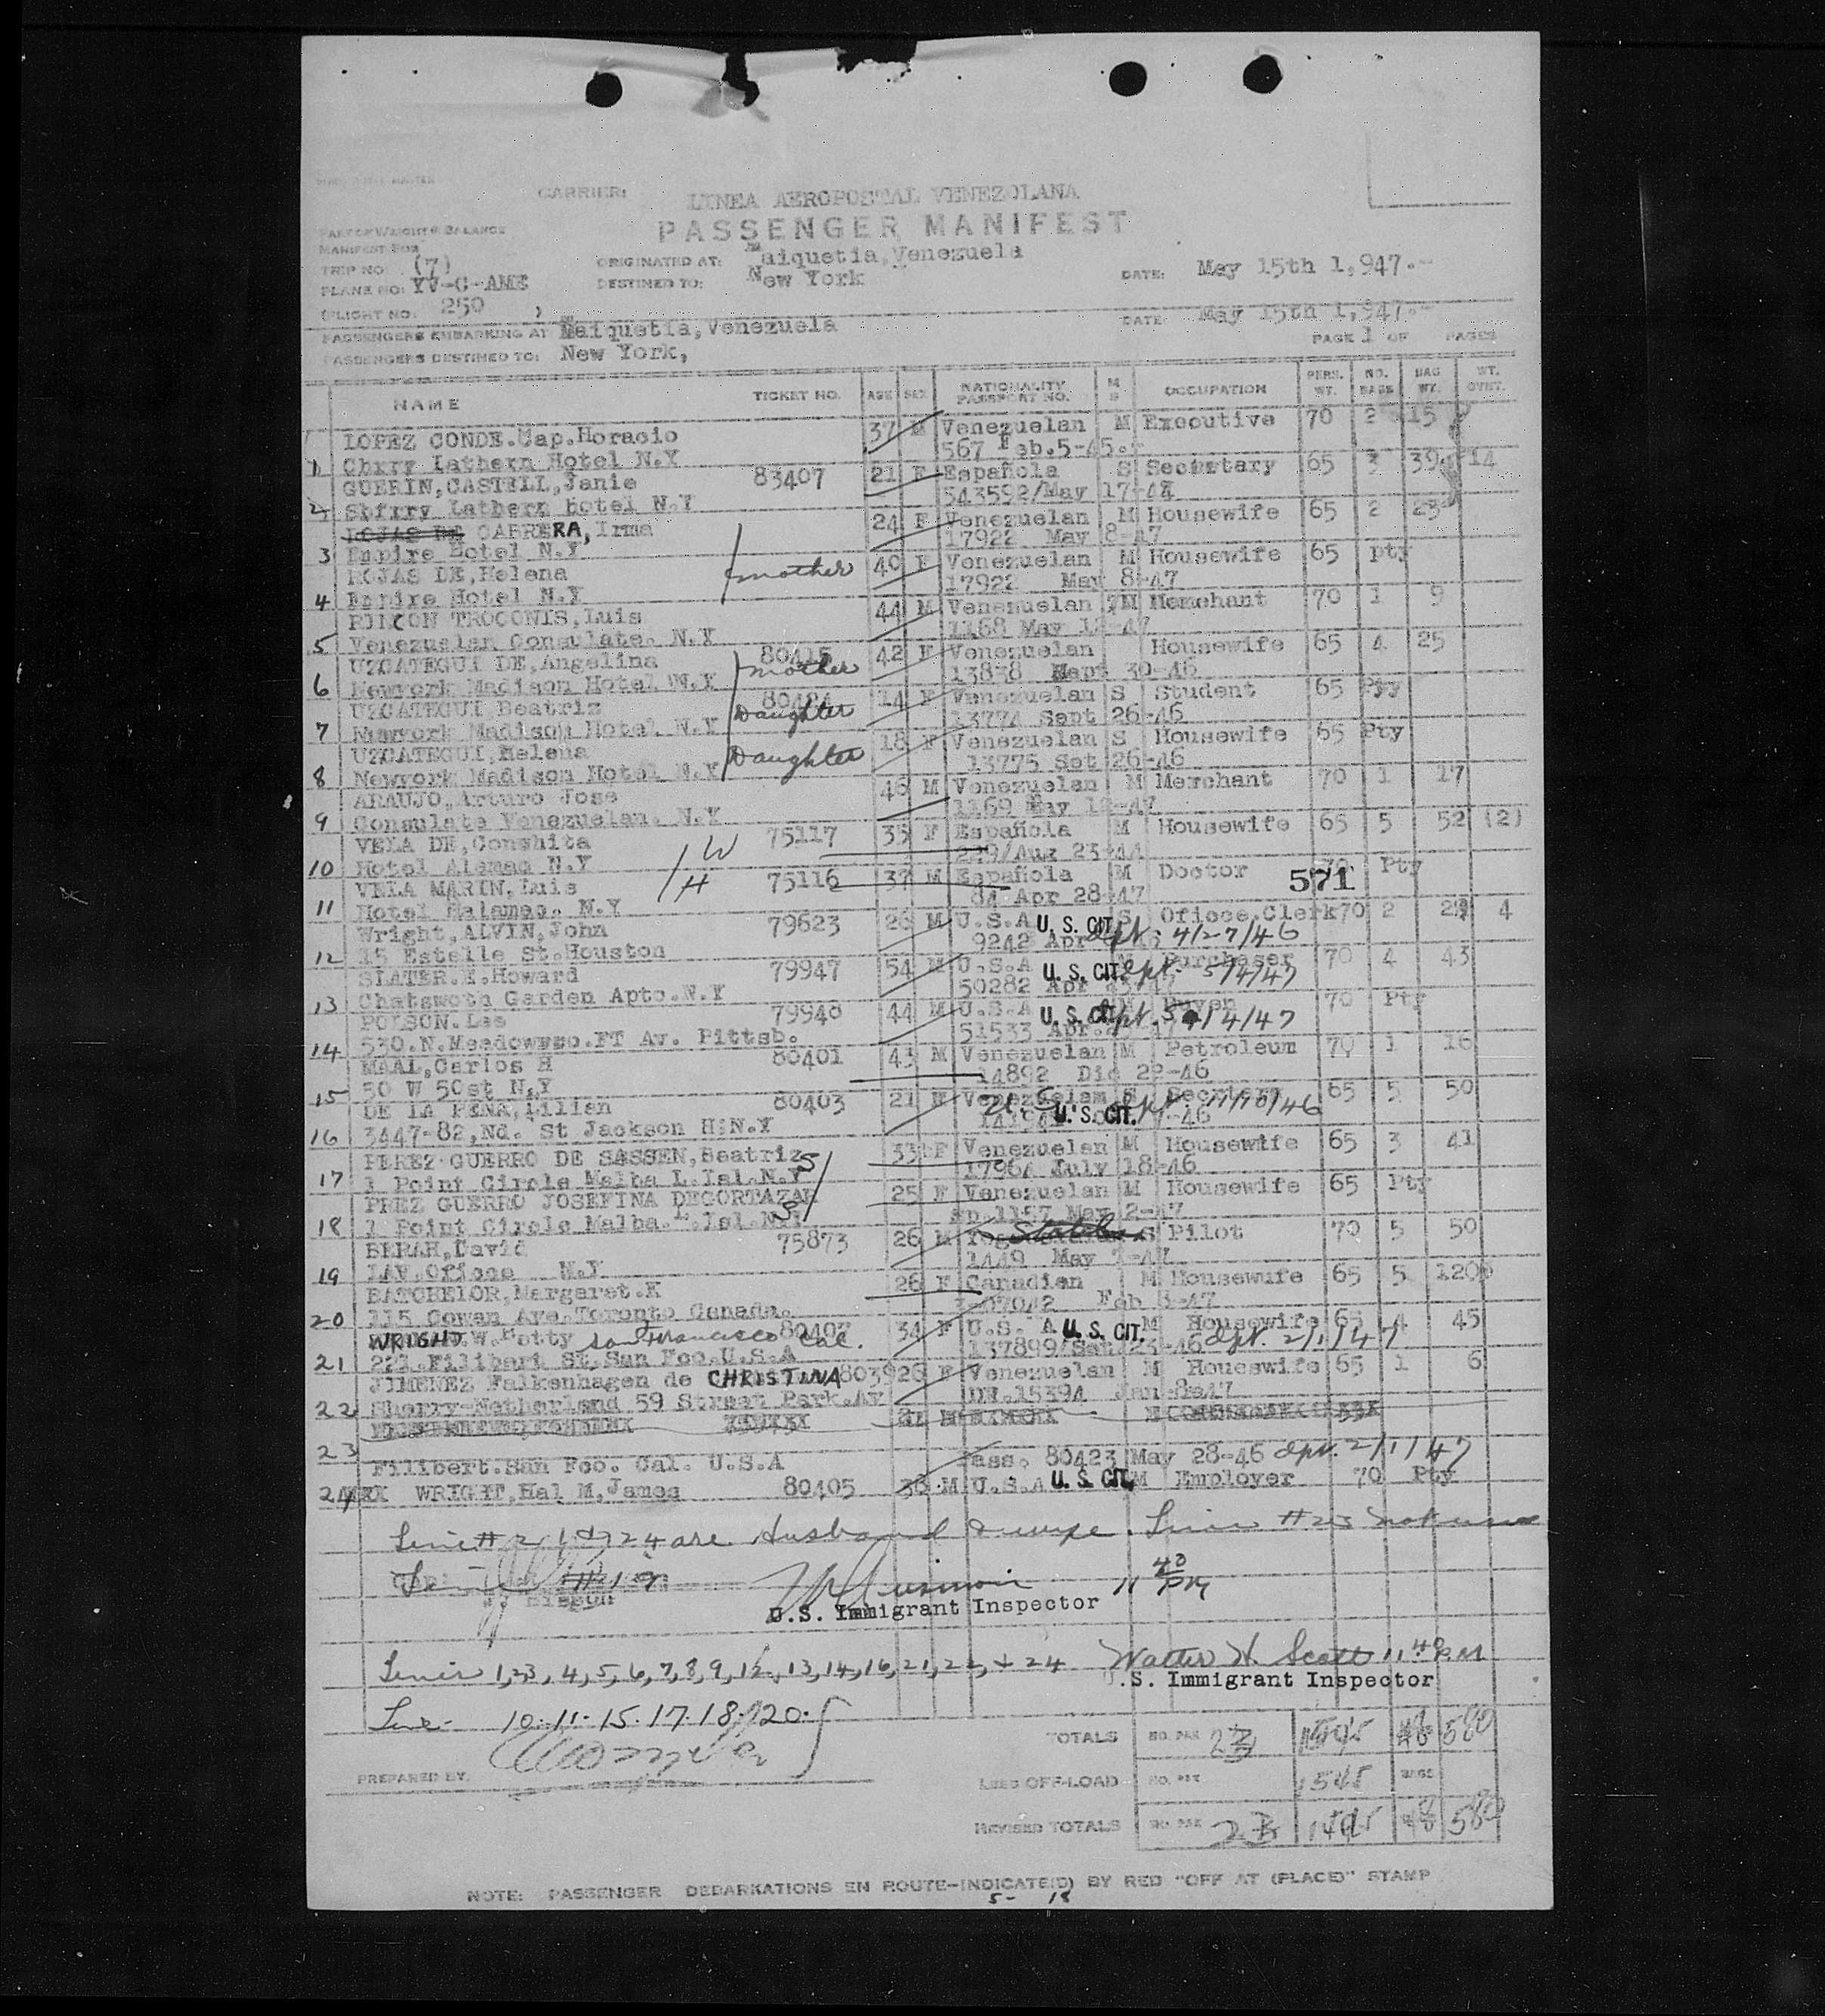 CARRIER: LINEA AEROPOSTAL VENEZOLANA
PASSENGER MANIFEST
PART OF WEIGHT & BALANCE
MANIFEST FOR
TRIP NO: (7) ORIGINATED AT: Maiquetia,Venezuela
PLANE NO: YV-C-AME DESTINED TO: New York DATE: May 15th 1,947.-
(FLIGHT NO. 250 )
PASSENGERS EMBARKING AT Maiquetia,Venezuela DATE: May 15th 1,947.-
PASSENGERS DESTINED TO: New York, PAGE 1 OF PAGES
NAME TICKET NO. AGE SEX NATIONALITY PASSPORT NO. M S OCCUPATION PERS. WT. NO. BAGS BAG WT. WT. OVWT.
LOPEZ CONDE.Cap.Horacio 37 M Venezuelan M Executive 70 2 15
1 Chrry Lathern Hotel N.Y 567 Feb.5-45.-
GUERIN,CASTELL,Janie 83407 21 F Española S Secretary 65 3 39 14
2 Shfrry Lathern Hotel N.Y 543592/May 17-47
ROJAS DE CABRERA,Irma 24 F Venezuelan M Housewife 65 2 23
3 Empire Hotel N.Y 17922 May 8-47
ROJAS DE,Helena mother 40 F Venezuelan M Housewife 65 pty
4 Empire Hotel N.Y 17922 May 8-47
RINCON TROCONIS,Luis 44 M Venezuelan M Merchant 70 1 9
5 Venezuelan Consulate. N.Y 1168 May 12-47
UZCATEGUI DE,Angelina 80415 mother 42 F Venezuelan Housewife 65 4 25
6 Newyork Madison Hotel N.Y 13838 Sept 30-46
UZCATEGUI Beatriz 80424 Daughter 14 F Venezuelan S Student 65 Pty
7 Newyork Madison Hotel N.Y 13774 Sept 26-46
UZCATEGUI,Helena Daughter 18 F Venezuelan S Housewife 65 Pty
8 Newyork Madison Hotel N.Y 13775 Set 26-46
ARAUJO,Arturo Jose 46 M Venezuelan M Merchant 70 1 17
9 Consulate Venezuelan. N.Y 1169 May 12-47
VELA DE,Conshita W 75117 35 F Española M Housewife 65 5 52 (2)
10 Hotel Alamac N.Y 229/Aug 23-44
VELA MARIN,Luis H 75116 37 M Española M Doctor 70 Pty
571
11 Hotel Halamac. N.Y 84 Apr 28-47
Wright,ALVIN,John 79623 26 M U.S.A U.S. CIT. S Oficce,Clerk 70 2 4
12 15 Estelle St.Houston 9242 Apr dpt. 4/27/46
SLATER.E.Howard 79947 54 M U.S.A U.S. CIT. M Purchaser 70 4 43
13 Chatswoth Garden Apto.N.Y 50282 Apr dpt. 5/4/47
POISON.Leo 79948 44 M U.S.A U.S. CIT. Buyer 70 Pty
14 530.N.Meadowwso.FT Av. Pittsb. 51533 Apr. dpt. 5/4/47
MAAL,Carlos H 80401 43 M Venezuelan M Petroleum 70 1 16
15 50 W 50st N.Y 14892 Dic 22-46
DE LA PENA,Lilian 80403 21 F Venezuelan 65 5 50
16 3447-82,Nd. St Jackson H:N.Y U.S. CIT. -46
PEREZ GUERRO DE SASSEN,Beatriz S 33 F Venezuelan M Housewife 65 3 41
17 1 Point Circle Malba L.Isl.N.Y 17964 July 18-46
PREZ GUERRO JOSEFINA DECORTAZAR S 25 F Venezuelan M Housewife 65 Pty
18 1 Point Circle Malba.L.Isl.N.Y 1157 May 2-47
BERAH,David 75873 26 M S Pilot 70 5 50
19 LAV,Oficce N.Y 1449 May
BATCHELOR,Margaret.K 26 F Canadian M Housewufe 65 5 120
20 115 Cowan Ave.Toronto Canada. Feb 3-47
WRIGHT.W.Betty San Francisco Cal. 80407 34 F U.S. A U.S. CIT. M Housewife 65 4 45
21 221.Filibert St.San Fco.U.S.A 137899/ 23-46 dpt. 2/1/47
JIMENEZ Falkenhagen de CHRISTINA 8039 26 F Venezuelan M Houeswife 65 1 6
22 Sherry-Netherland 59 Street Park.Av DE.15394 Jan
23
Filibert.San Fco. Cal. U.S.A Pass. 80423 May 28-46 dpt. 2/1/47
24 WRIGHT,Hal M.James 80405 38 M U.S.A U.S. CIT. M Employer 70 Pty
Line # 21 & 24 are Husband & wife. Line #23 not used
Line #19
11 40 PM
U.S. Immigrant Inspector
Lines 1,2,3,4,5,6,7,8,9,12,13,14,16,21,22,+ 24 Walter H. Scott 11 40 P.M
U.S. Immigrant Inspector
Line- 10.11.15.17.18.20.
TOTALS NO. PAX 23 580
PREPARED BY
LESS OFF-LOAD NO. PAX BAGS
REVISED TOTALS NO. PAX 580
NOTE: PASSENGER DEBARKATIONS EN ROUTE-INDICATE(D) BY RED "OFF AT (PLACE)" STAMP